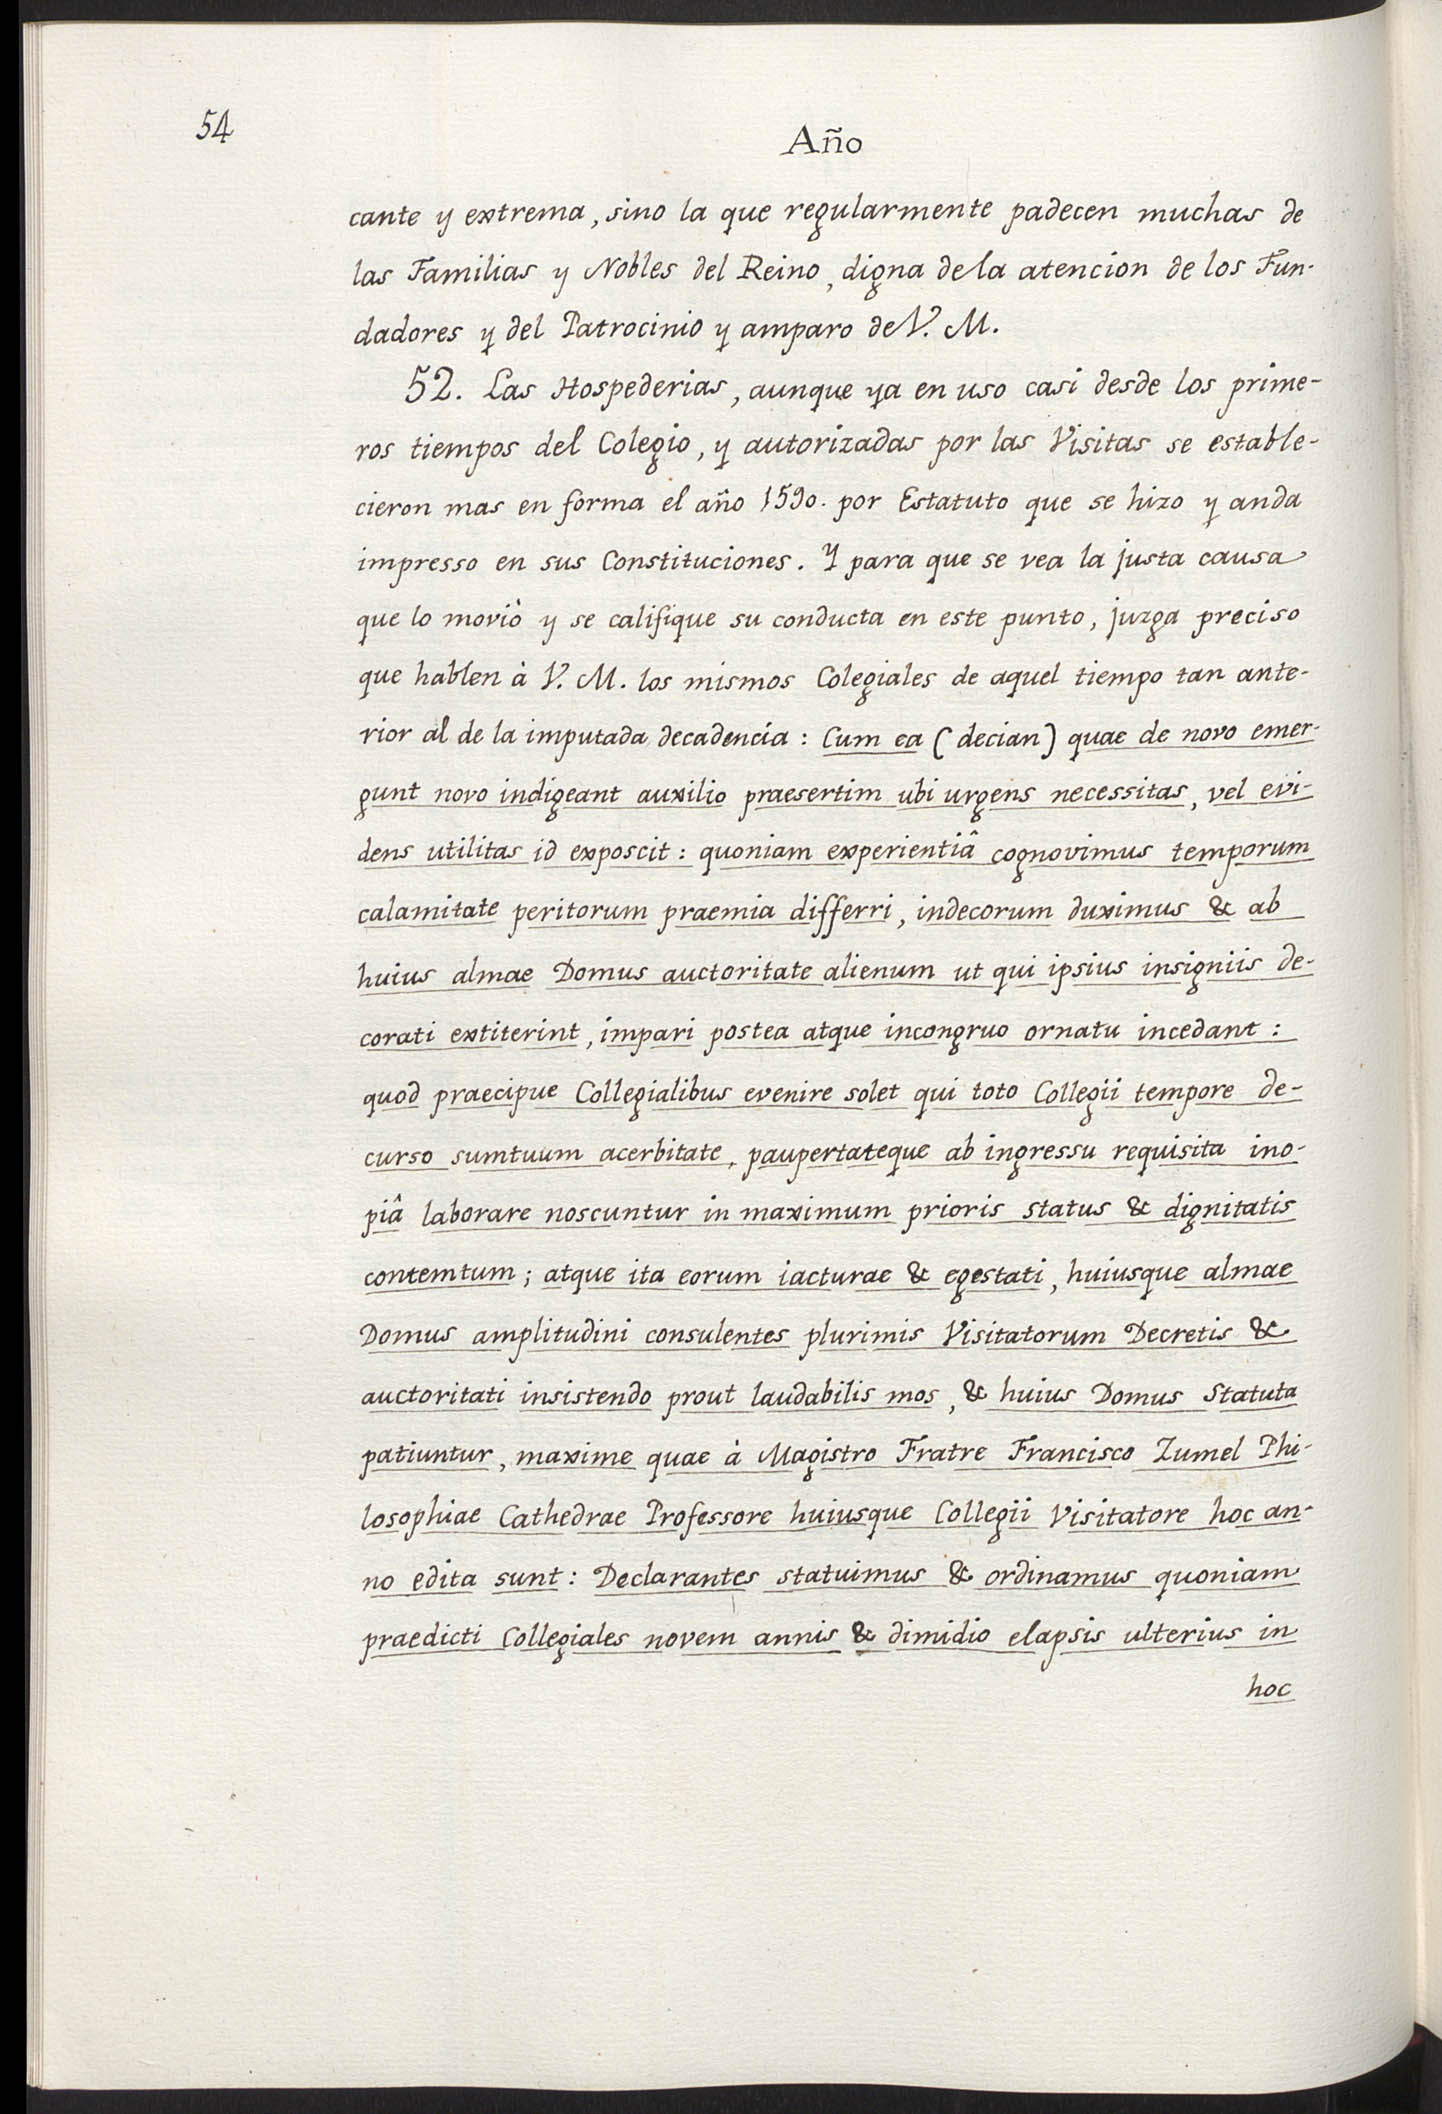 54
Año
cante y extrema, sino la que regularmente padecen muchas de
las Familias y Nobles del Reino, digna de la atencion de los Fun-
dadores y del Patrocinio y amparo de V. M.
52. Las Hospederias, aunque ya en uso casi desde los prime-
ros tiempos del Colegio, y autorizadas por las Visitas se estable-
cieron mas en forma el año 1590. por Estatuto que se hizo y anda
impresso en sus Constituciones. Y para que se vea la justa causa
que lo moviò y se califique su conducta en este punto, juzga preciso
que hablen à V. M. los mismos Colegiales de aquel tiempo tan ante-
rior al de la imputada decadencia: Cum ea (decian) quae de novo emer-
gunt novo indigeant auxilio praesertim ubi urgens necessitas, vel evi-
dens utilitas id exposcit: quoniam experientiâ cognovimus temporum
calamitate peritorum praemia differri, indecorum duximus & ab
huius almae Domus auctoritate alienum ut qui ipsius insigniis de-
corati extiterint, impari postea atque incongruo ornatu incedant:
quod praecipue Collegialibus evenire solet qui toto Collegii tempore de-
curso sumtuum acerbitate, paupertateque ab ingressu requisita ino-
piâ laborare noscuntur in maximum prioris status & dignitatis
contemtum; atque ita eorum iacturae & egestati, huiusque almae
Domus amplitudini consulentes plurimis Visitatorum Decretis &
auctoritati insistendo prout laudabilis mos, & huius Domus Statuta
patiuntur, maxime quae à Magistro Fratre Francisco Zumel Phi-
losophiae Cathedrae Professore huiusque Collegii Visitatore hoc an-
no edita sunt: Declarantes statuimus & ordinamus quoniam
praedicti Collegiales novem annis & dimidio elapsis ulterius in
hoc